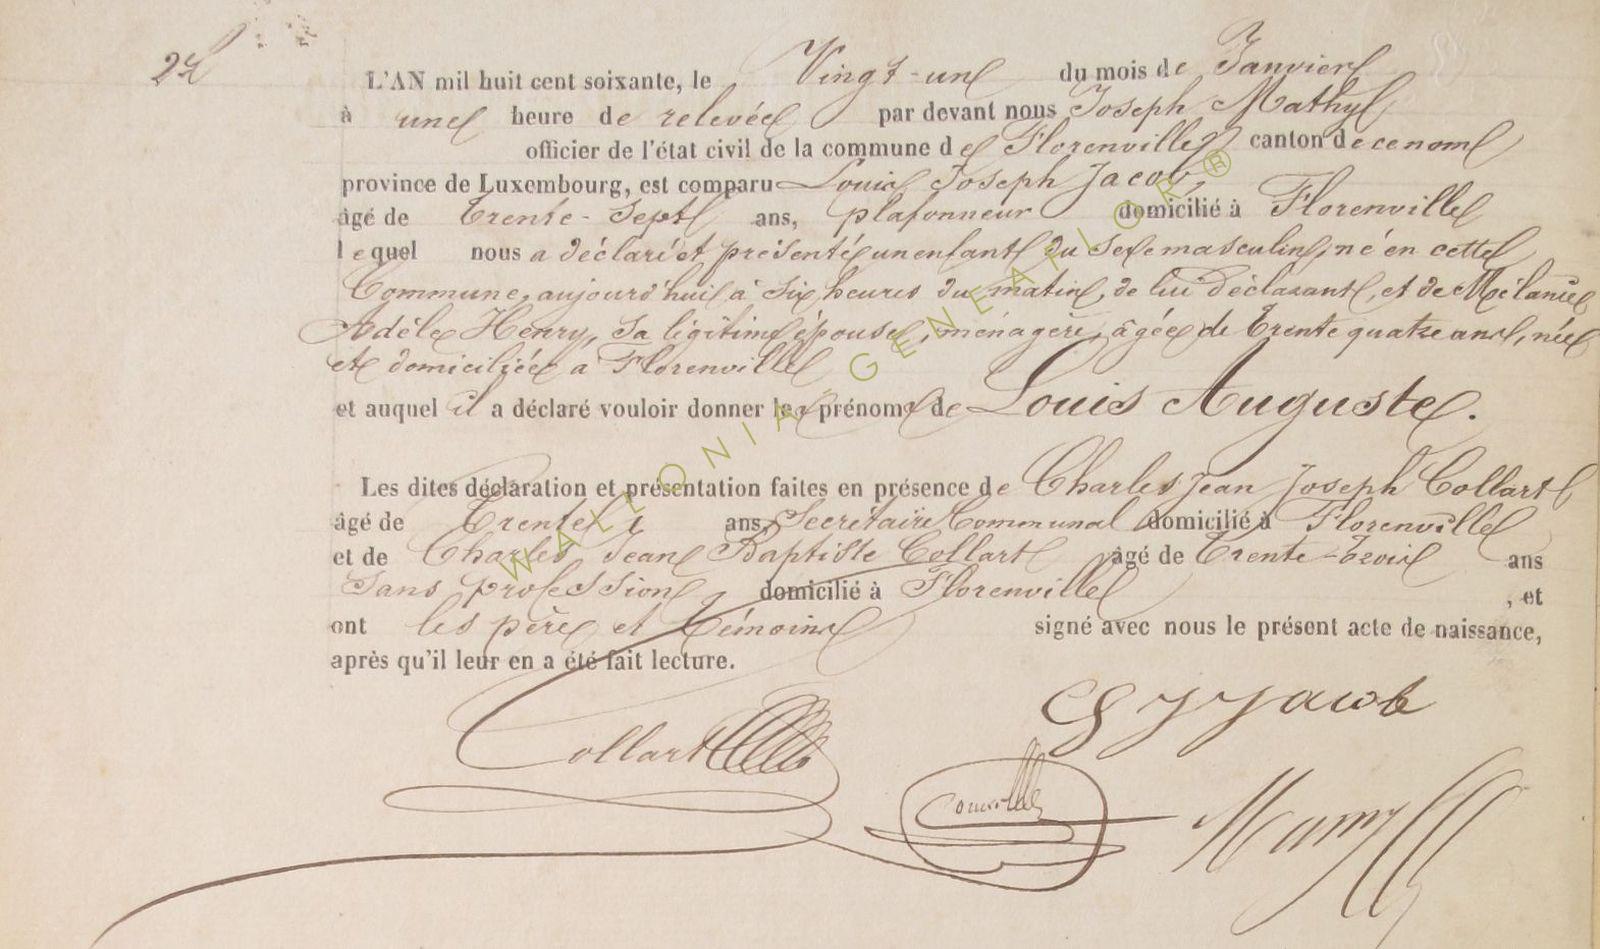 L'AN mil huit cent soixante, le Vingt-un du mois de Janvier
à une heure de relevée par devant nous Joseph Mathy
officier de l'état civil de la commune de Florenville canton de ce nom
province de Luxembourg, est comparu Louis Joseph Jacob,
âgé de trente-sept ans, plafonneur domicilié à Florenville
lequel nous a déclaré et présenté un enfant du sexe masculin, né en cette
Commune, aujourd'hui à six heures du matin, de lui déclarant, et de Mélanie
Adèle Henry, sa légitime épouse, ménagère, âgée de trente quatre ans, née
et domiciliée a Florenville
et auquel il a déclaré vouloir donner les prénoms de Louis Auguste.
Les dites déclaration et présentation faites en présence de Charles Jean Joseph Collart
âgé de trente ans, Secrétaire Communal domicilié à Florenville
et de Charles Jean Baptiste Collart âgé de trente-trois ans
Sans profession domicilié à Florenville, et
ont les père et témoins signé avec nous le présent acte de naissance,
après qu'il leur en a été fait lecture.
Jacob
Collart
WALLONIA-GENEALOR®